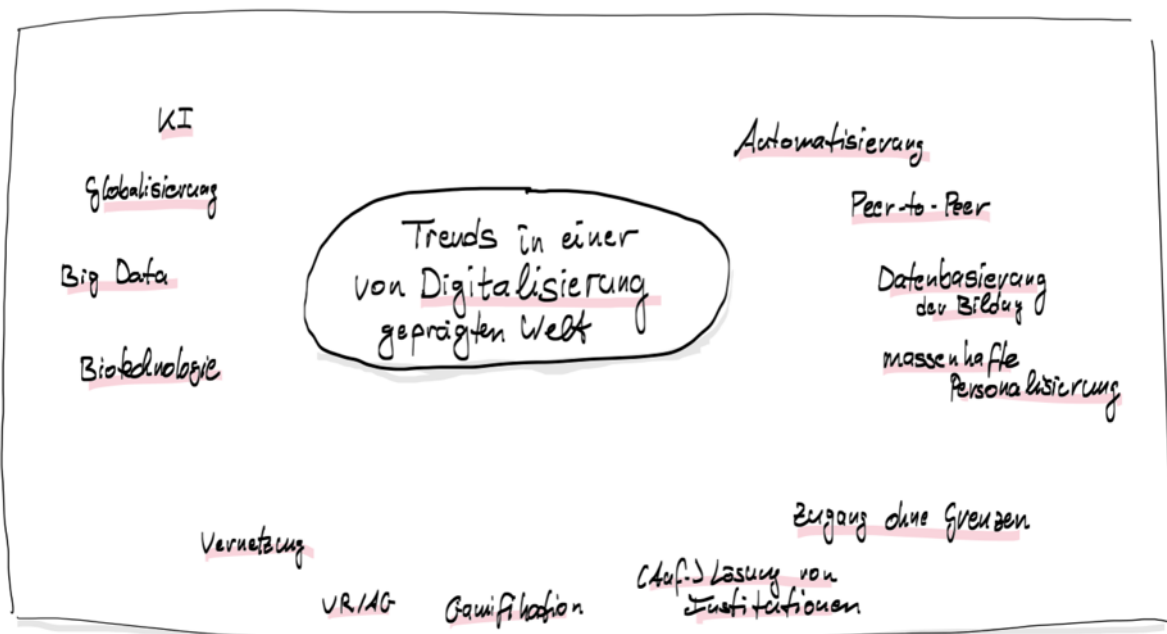 KI
Globalisierung
Big Data
Biotechnologie
Trends in einer
von Digitalisierung
geprägten Welt
Automatisierung
Peer-to-Peer
Datenbasierung
der Bildung
massenhafte
Personalisierung
Vernetzung
VR/AG
Gamifikation
(Auf-) Lösung von
Institutionen
Zugang ohne Grenzen